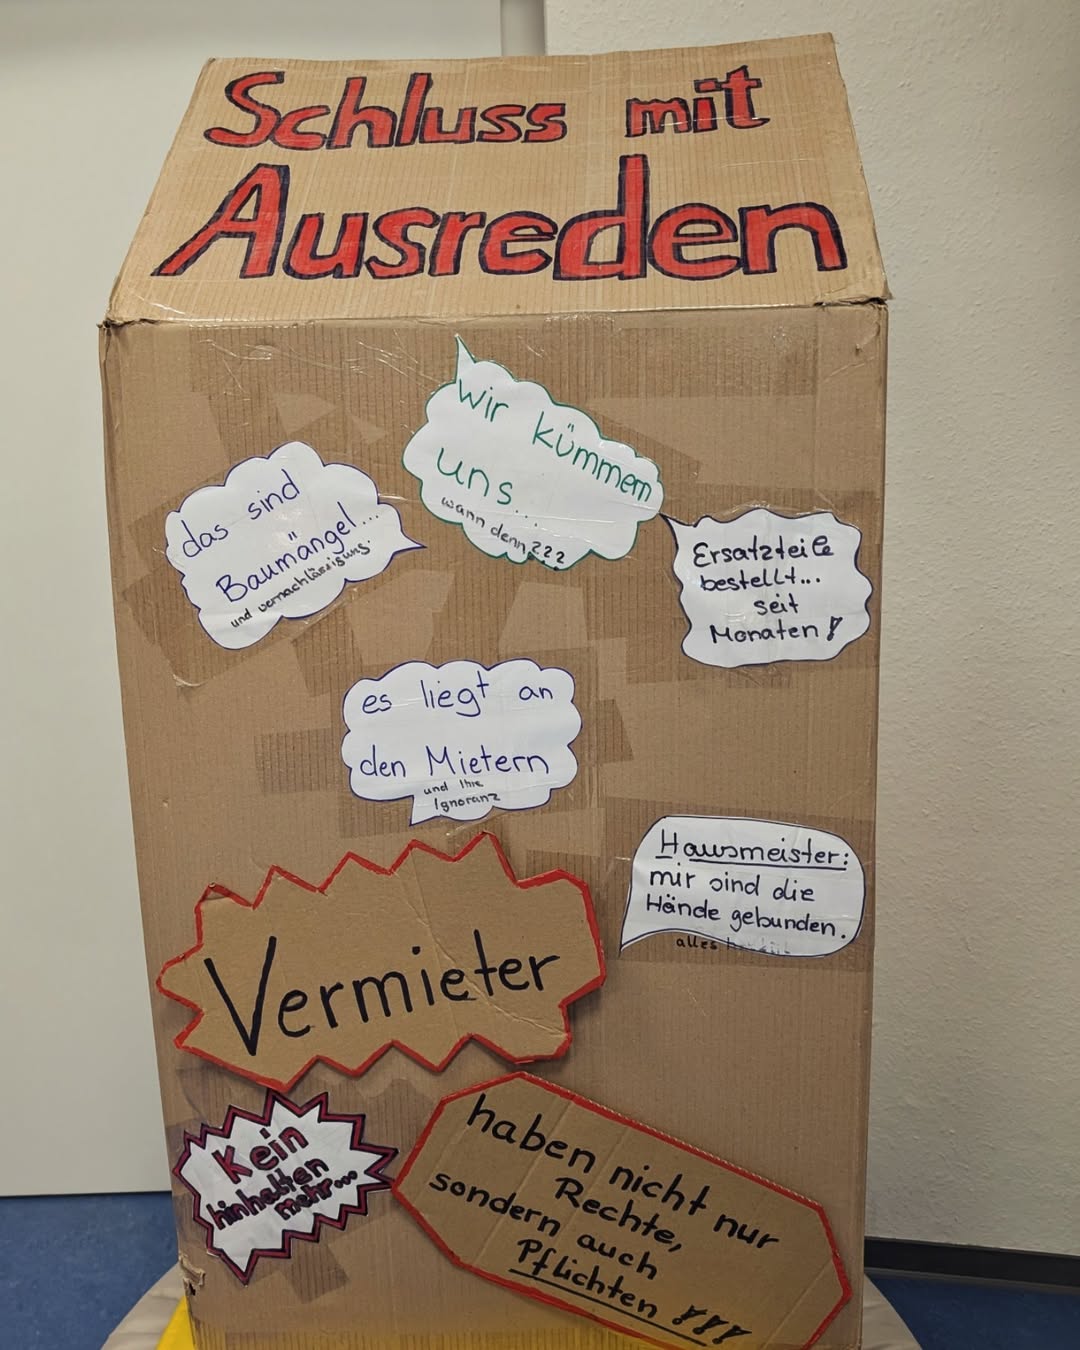 Schluss mit
Ausreden
wir kümmern
uns...
wann denn???
das sind
Baumängel...
und vernachlässigung.
Ersatzteile
bestellt...
seit
Monaten!
es liegt an
den Mietern
und Ihre
Ignoranz
Hausmeister:
mir sind die
Hände gebunden.
alles
Vermieter
Kein
hinhalten
mehr...
haben nicht nur
Rechte,
sondern auch
Pflichten !!!